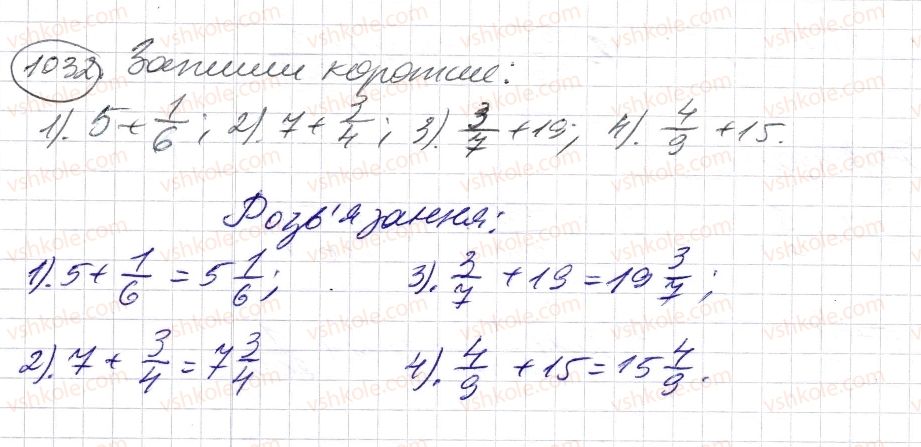 1032. Запиши коротше:
1). 5 + 1/6; 2). 7 + 3/4; 3). 3/7 + 19; 4). 4/9 + 15.
Розв'язання:
1). 5 + 1/6 = 5 1/6; 3). 3/7 + 19 = 19 3/7;
2). 7 + 3/4 = 7 3/4 4). 4/9 + 15 = 15 4/9.
vshkole.com